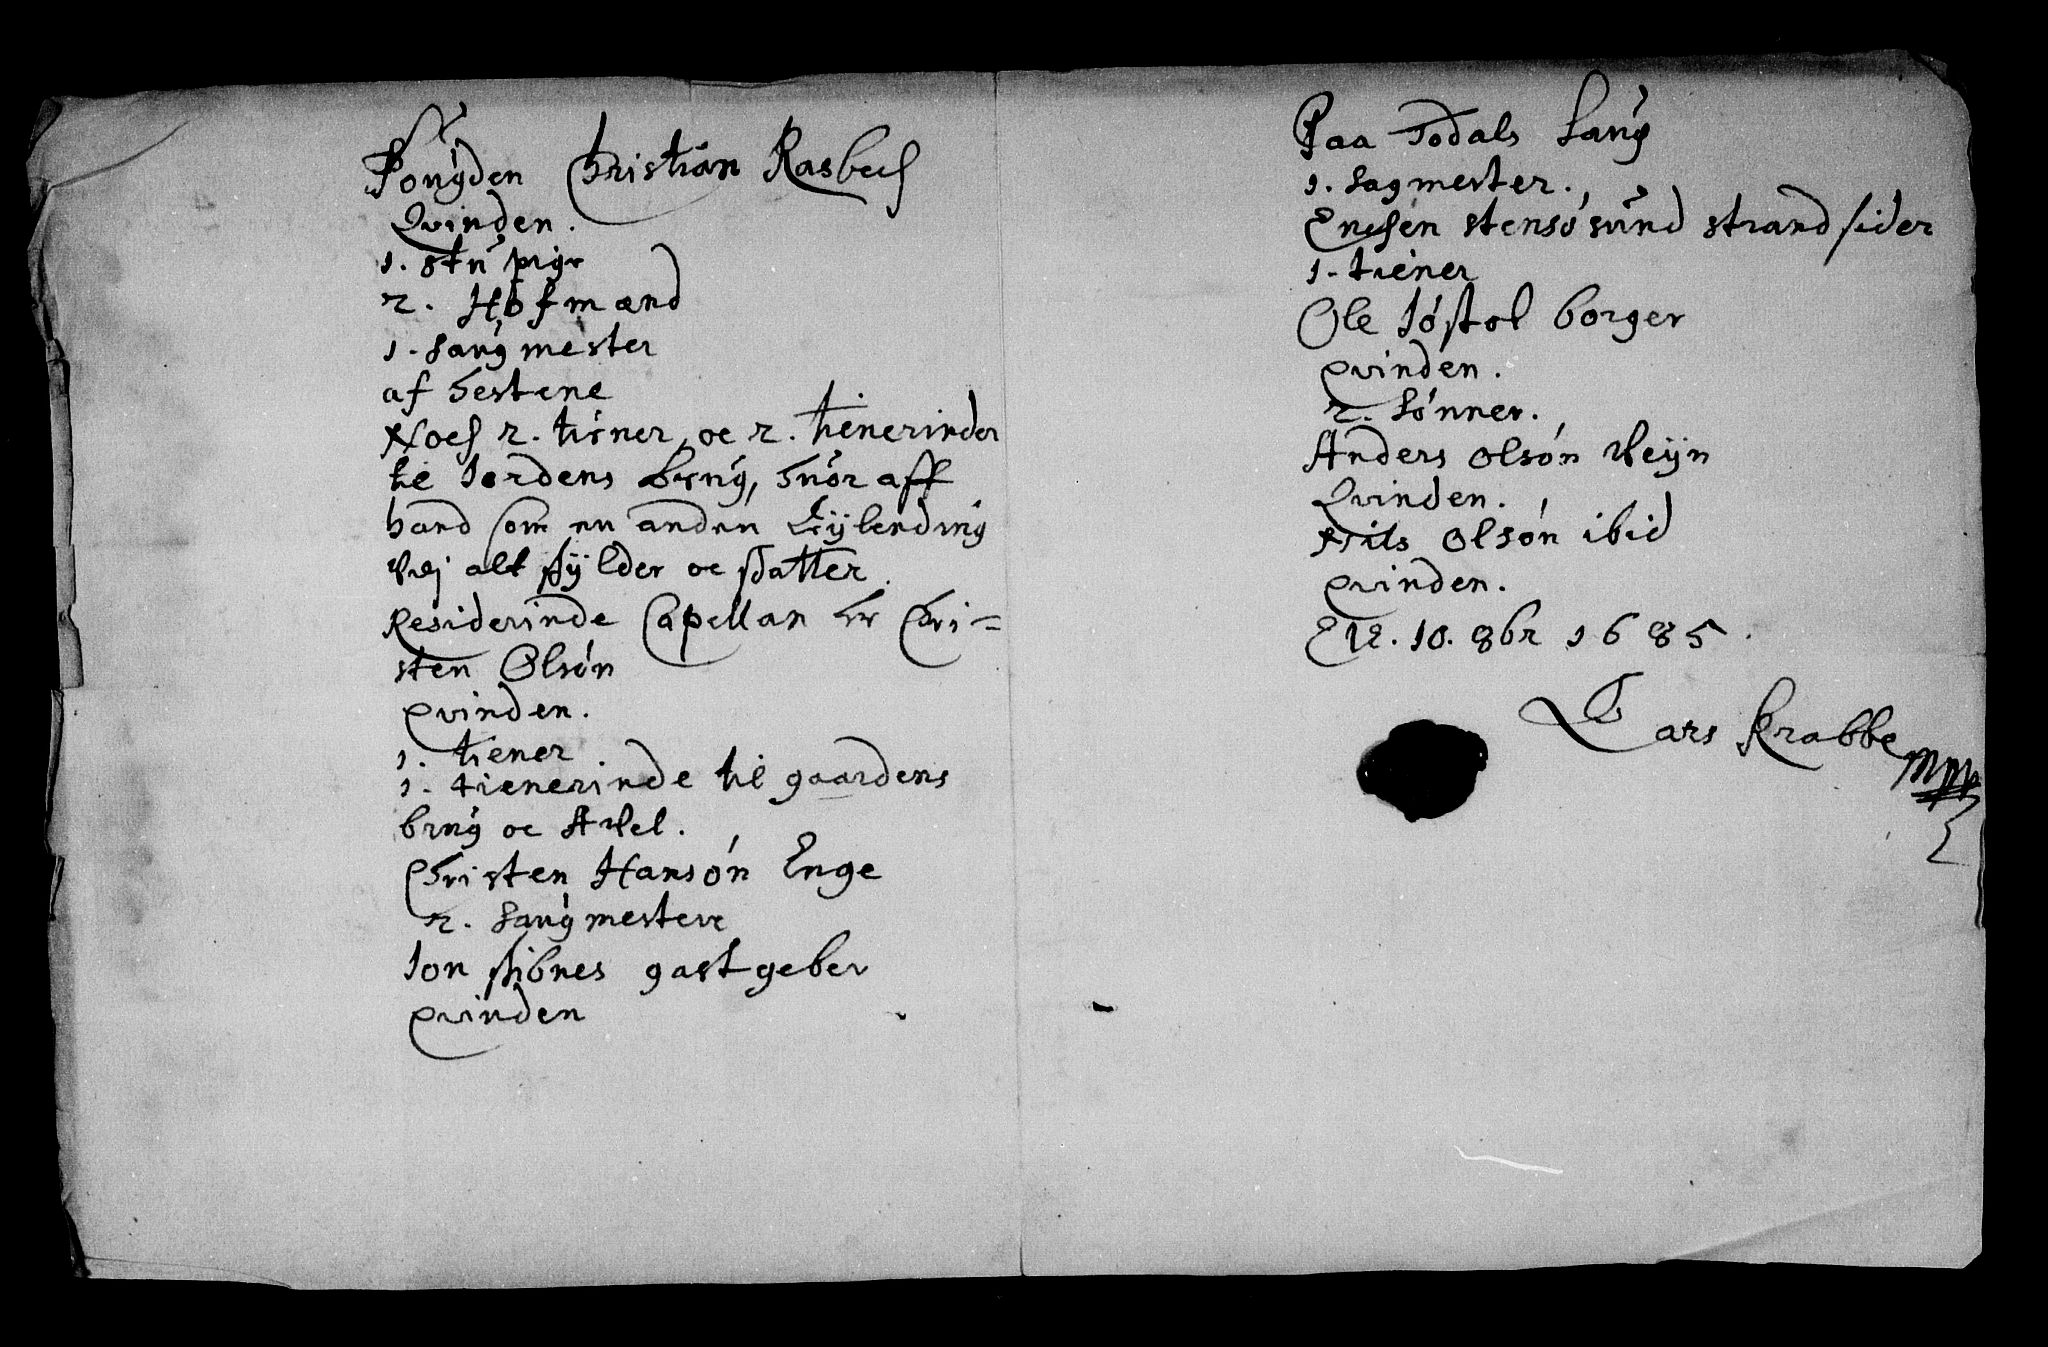 Fougden Christian Rasbech
Qvinden.
1. stu pige
2. Hofmænd
1. Saug mester
af hestene
Noch 2. tiener oc 2. tienerinder
til Jordens brug, huor aff
hand som en anden Leylending
alt skylder oc skatter
Residerinde Capellan hr Chri-
sten Olsøn
qvinden.
1. tiener
1. tienerinde til gaardens
brug oc Avel.
Christen Hansøn Enge
2. Saugmestere
Jon gastgeber
qvinden
Paa Todals Saug
1. Sagmester.
Enchen stensøsund strandsider
1. tiener
Ole Jøstøl borger
qvinden.
2. Sønner.
Anders Olsøn
Qvinden.
Nils Olsøn ibid
qvinden.
10. 8br 1685.
Lars Krabbe
mpp